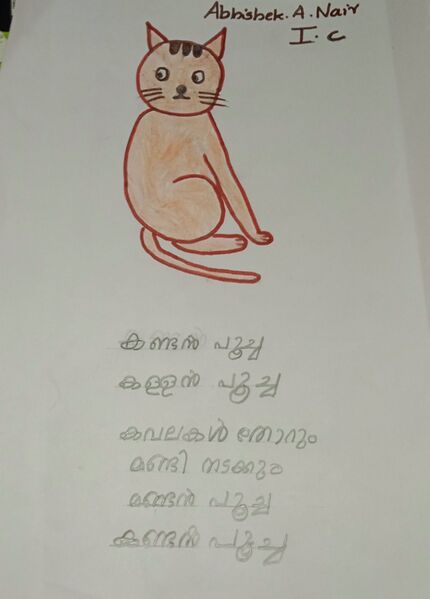 Abhishek. A. Nair
I. C
കണ്ടൻ പൂച്ച
കള്ളൻ പൂച്ച
കവലകൾ തോറും
മണ്ടി നടക്കും
മണ്ടൻ പൂച്ച
കണ്ടൻ പൂച്ച